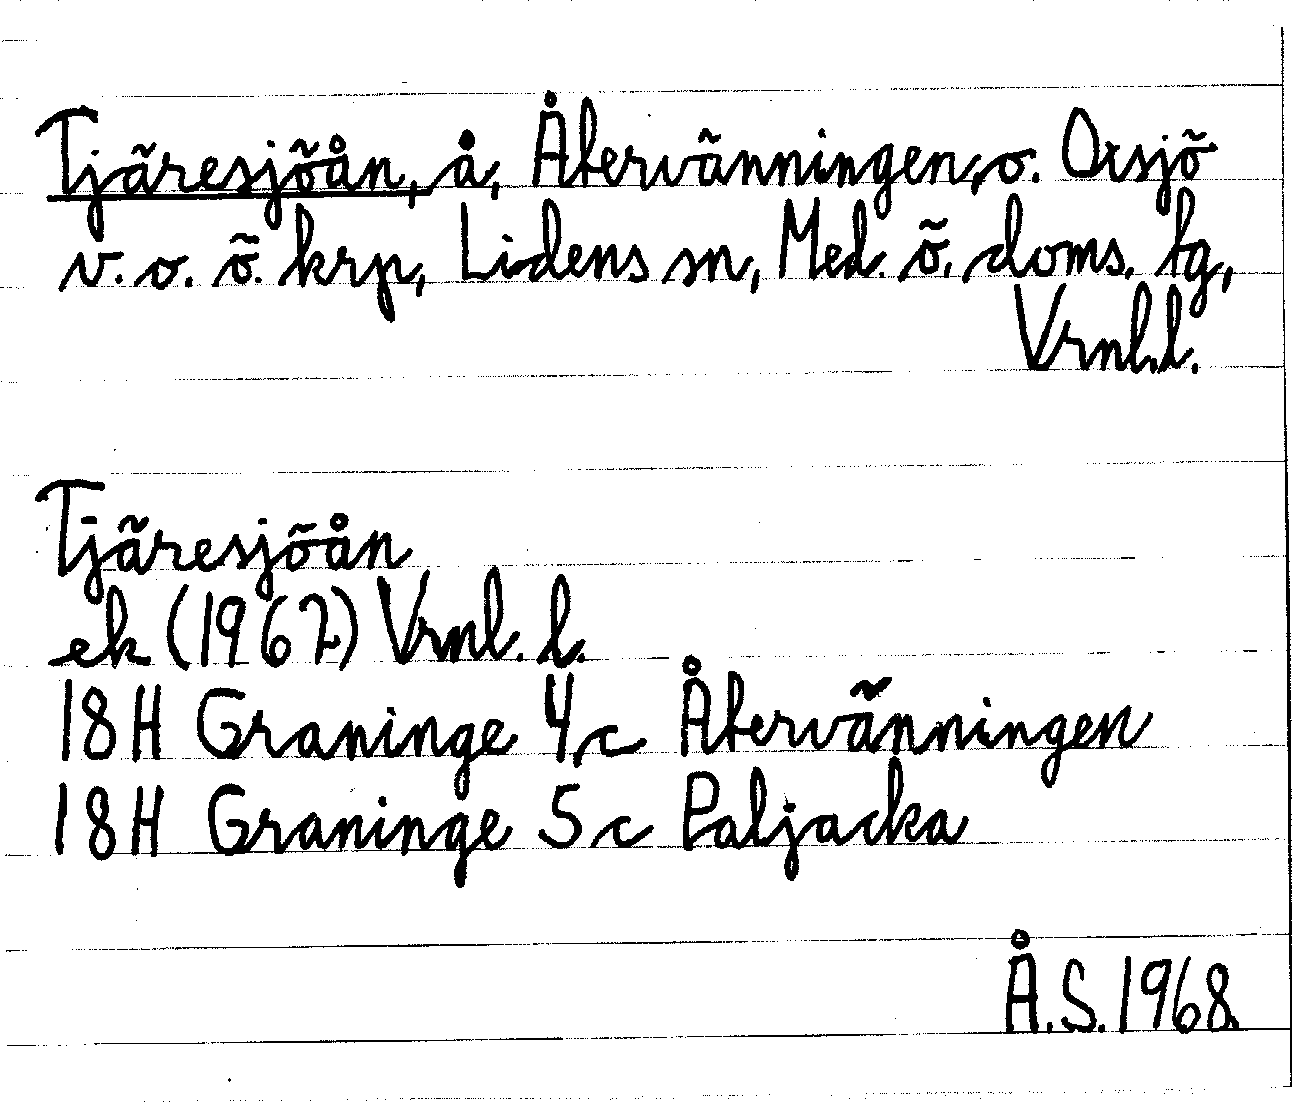 Tjäresjöån, å, Återvänningen, o. Oxsjö
v. o. ö. krp, Lidens sn, Med. ö. doms. tg,
Vrnl.l.
Tjäresjöån
ek (1967) Vrnl. l.
18H Graninge 4c Återvänningen
18H Graninge 5c Paljacka
Å.S. 1968